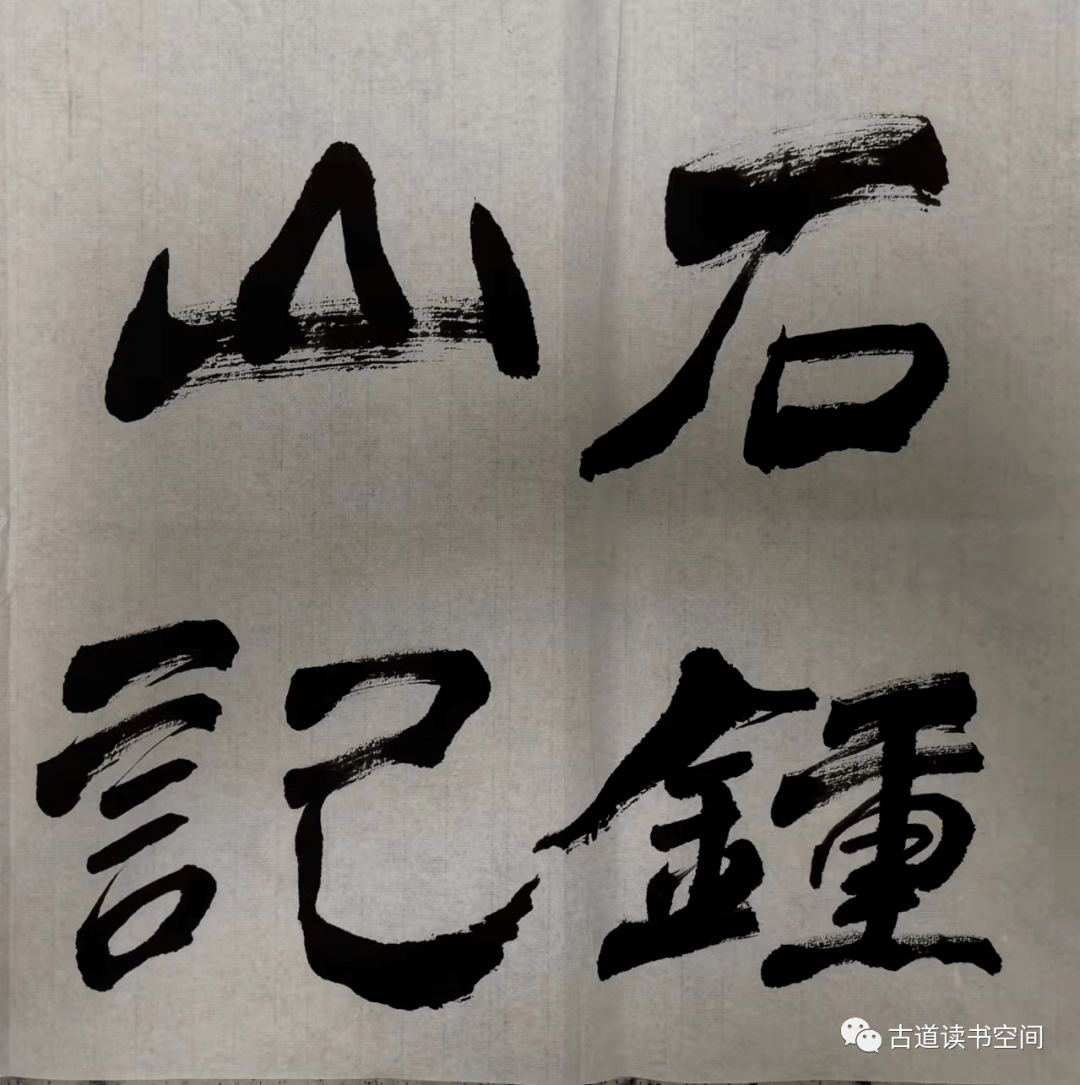 石鍾
山記
古道读书空间